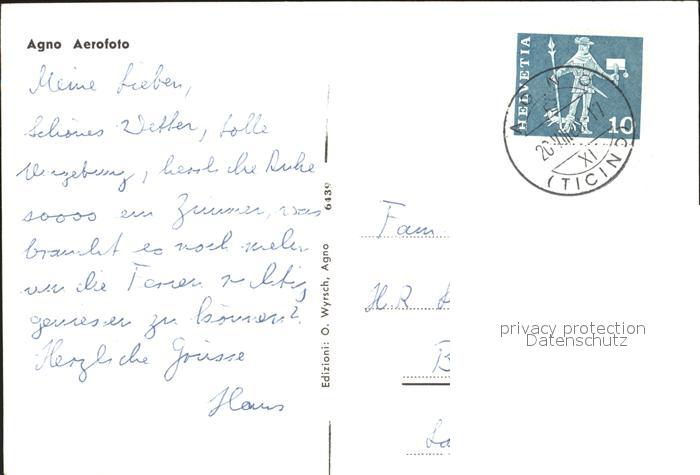 Agno Aerofoto
Meine Lieben,
Schönes Wetter, tolle
Umgebung, herrliche Ruhe
soooo ein Zimmer, was
braucht es noch mehr
um die Ferien richtig
geniessen zu können?
Herzliche Grüsse
Hans
Edizioni: O. Wyrsch, Agno 6439
HELVETIA
10
AGNO
XI
(TICINO)
Fam
H.R
B
La
privacy protection
Datenschutz